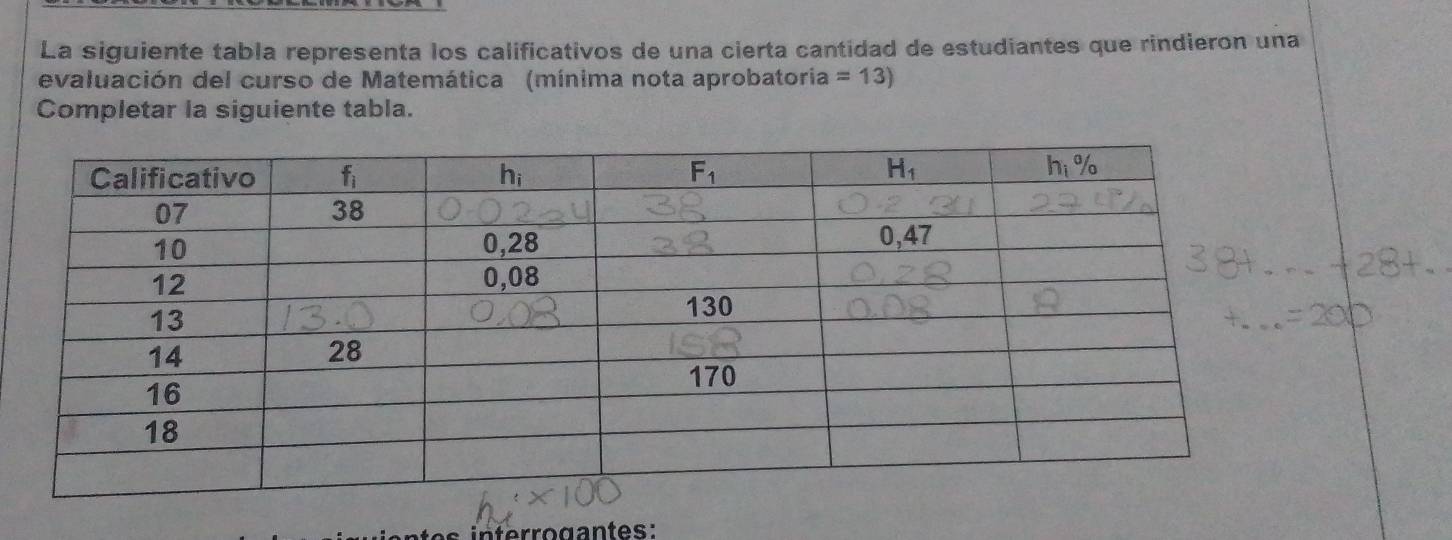 La siguiente tabla representa los calificativos de una cierta cantidad de estudiantes que rindieron una
evaluación del curso de Matemática (mínima nota aprobatoria = 13)
Completar la siguiente tabla.
Calificativo fi hi F1 H1 hi%
07 38 38
10 0,28 38 0,47
12 0,08 0.28
13 13.0 0.08 130 0.08 8
14 28 158
16 170
18
38+.... +28+..
+....=200
hi×100
interrogantes: